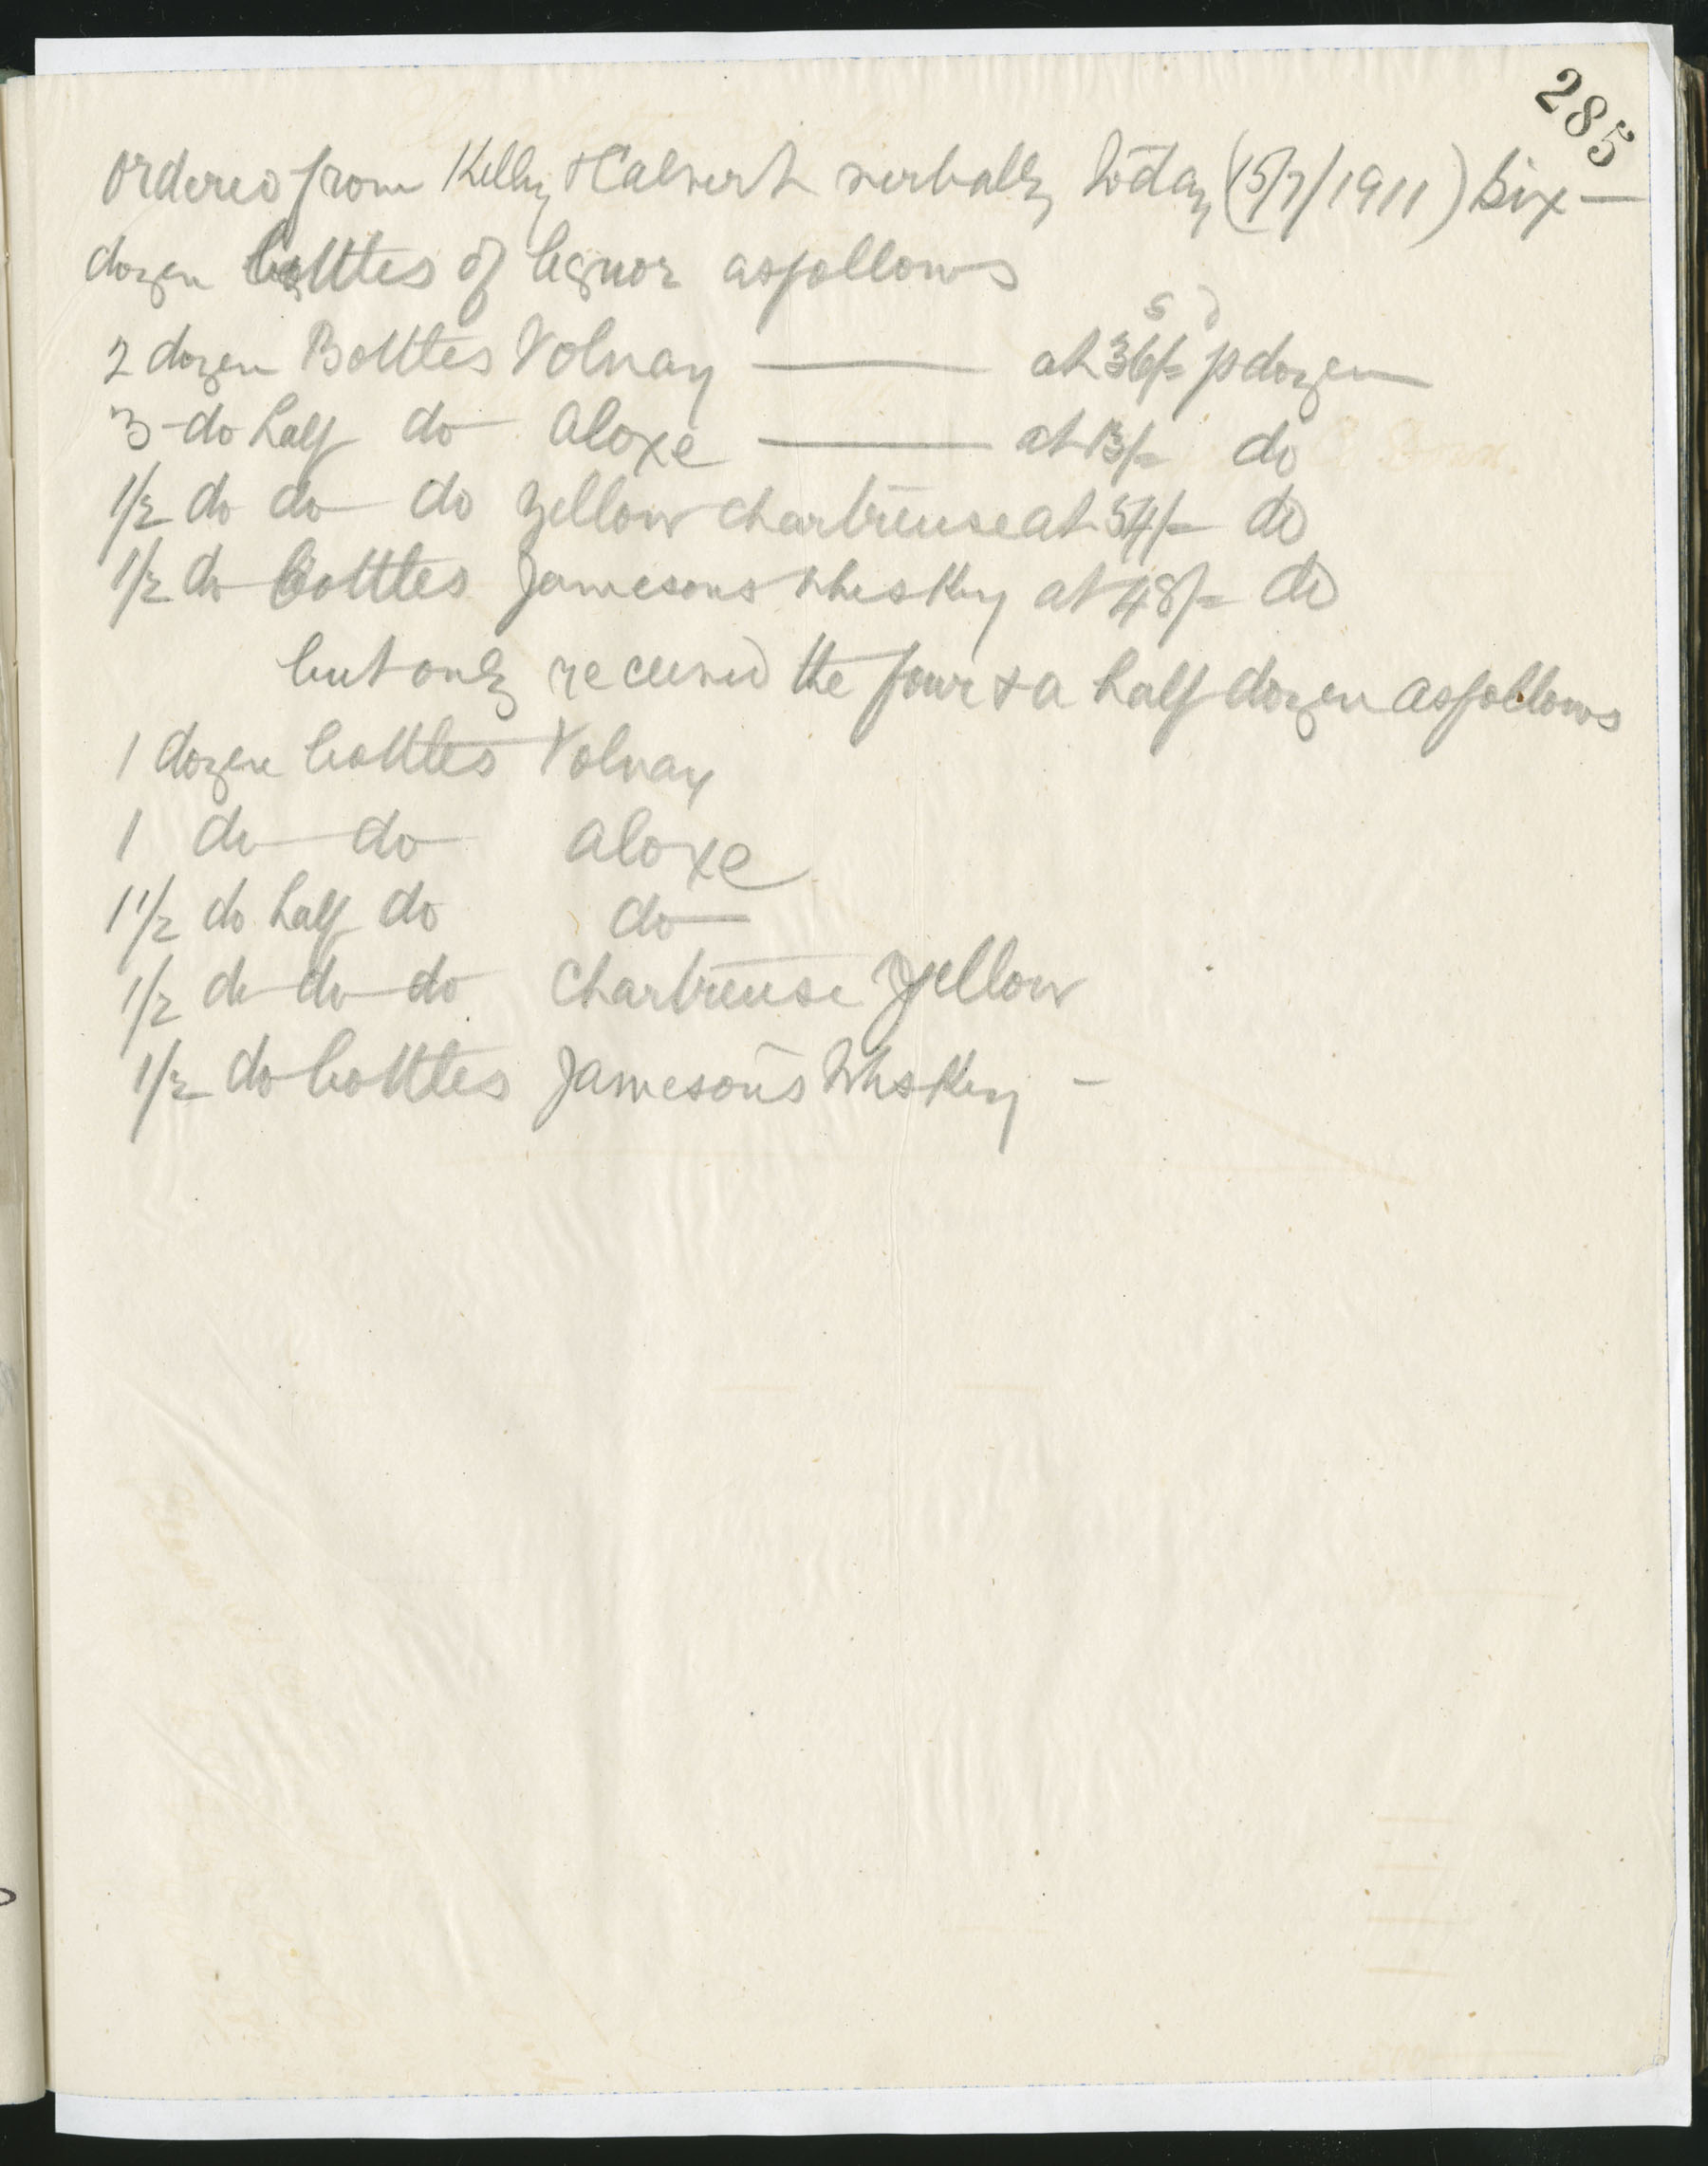 285
Ordered from Kelly & Calvert verbally today (15/7/1911) six—
dozen bottles of liquor as follows
s d
2 dozen Bottles Volnay — at 36/= p dozen
3 do half do Aloxe — at 13/= do
1/2 do do do Yellow Chartreuse at 54/= do
1/2 do Bottles Jamesons Whiskey at 48/= do
but only received the four & a half dozen as follows
1 dozen bottles Volnay
1 do do Aloxe
1 1/2 do half do do
1/2 do do do Chartreuse Yellow
1/2 do bottles Jameson's Whskey –